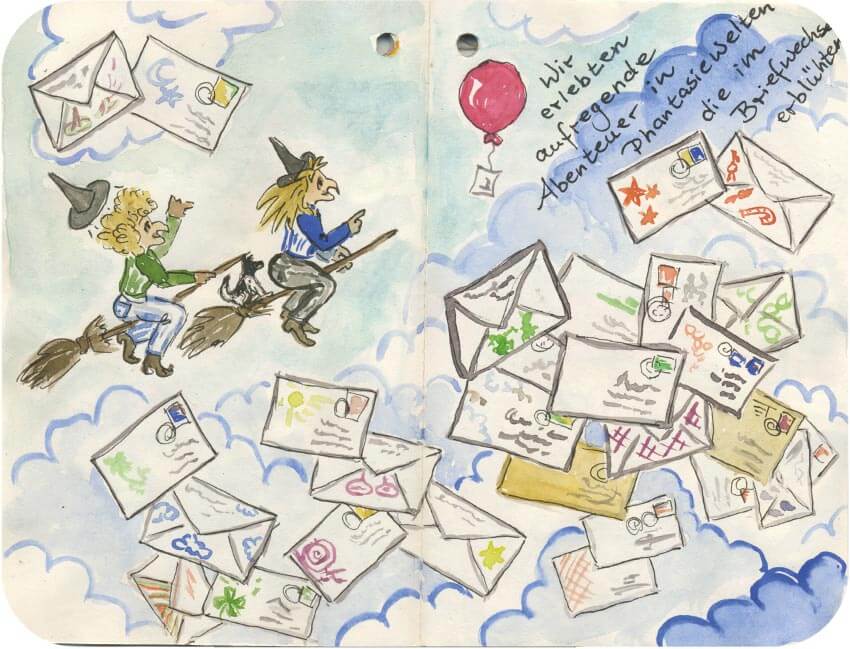 Wir
erlebten
aufregende
Abenteuer in
Phantasiewelten
die im
Briefwechsel
erblühten